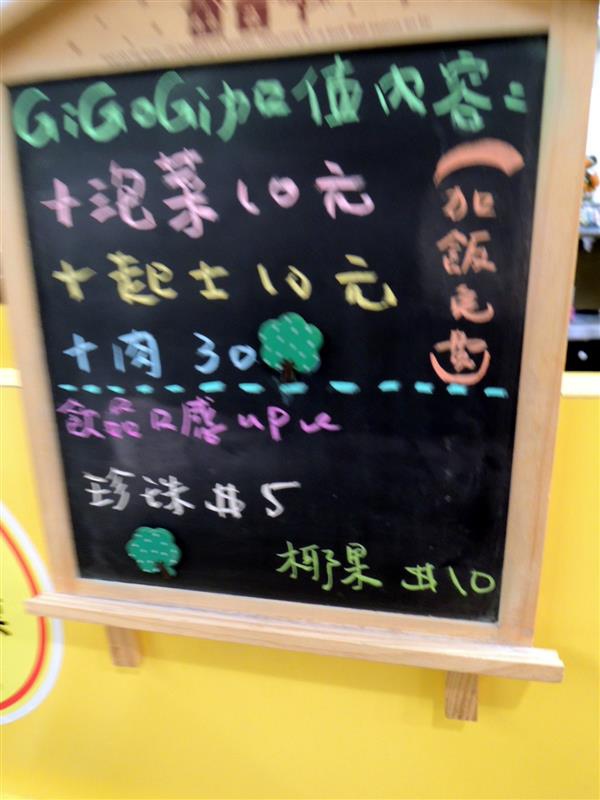 GiGoGi加口值內容：
+泡菜10元
+起士10元
+肉 30
(加飯免費)
飲品口感up up
珍珠 $5
椰果 $10